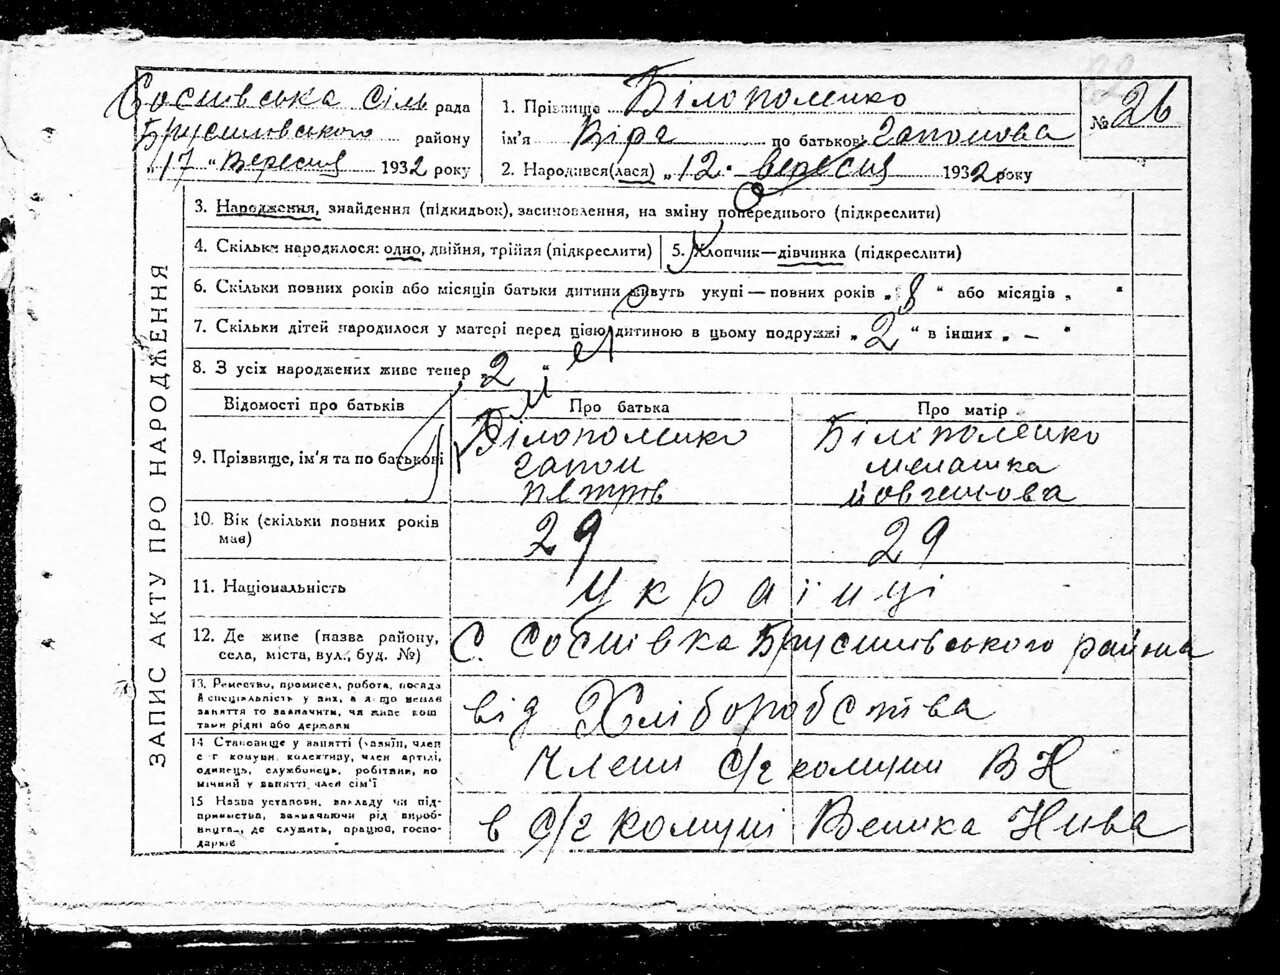 Соснівська сіль рада
Брусилівського району
„17 „ Вересня 1932 року
1. Прізвище Білополенко
ім'я Віра по батькові Гапонова
2. Народився(лася) „12" вересня 1932 року
№ 26
ЗАПИС АКТУ ПРО НАРОДЖЕННЯ
3. Народження, знайдення (підкидьок), засиновлення, на зміну попереднього (підкреслити)
4. Скільки народилося: одно, двійня, трійня (підкреслити) 5. Хлопчик—дівчинка (підкреслити)
6. Скільки повних років або місяців батьки дитини живуть укупі—повних років „8" або місяців „ "
7. Скільки дітей народилося у матері перед цією дитиною в цьому подружжі „2" в інших „ – "
8. З усіх народжених живе тепер „2"
Відомості про батьків Про батька Про матір
9. Прізвище, ім'я та по батькові
Білополенко
Гапон
Петрів
Білополенко
Мелашка
Йовгенова
10. Вік (скільки повних років має)
29 29
11. Національність
Українці
12. Де живе (назва району,
села, міста, вул., буд. №)
С. Соснівка Брусилівського района
13. Ремество, промисел, робота, посада
й спеціяльність у них, а як що немає
заняття то зазначити, чи живе кош
тами рідні або держави
від Хліборобства
14 Становище у занятті (хазяїн, член
с г комуни, колективу, член артілі,
одинець, службовець, робітник, по
мічний у занятті член сім'ї
Члени с/г комуни ВН
15 Назва установи, закладу чи під-
приємства, зазначаючи рід вироб-
ництва, де служить, працює, госпо-
дарює
в с/г комуні Велика Нива